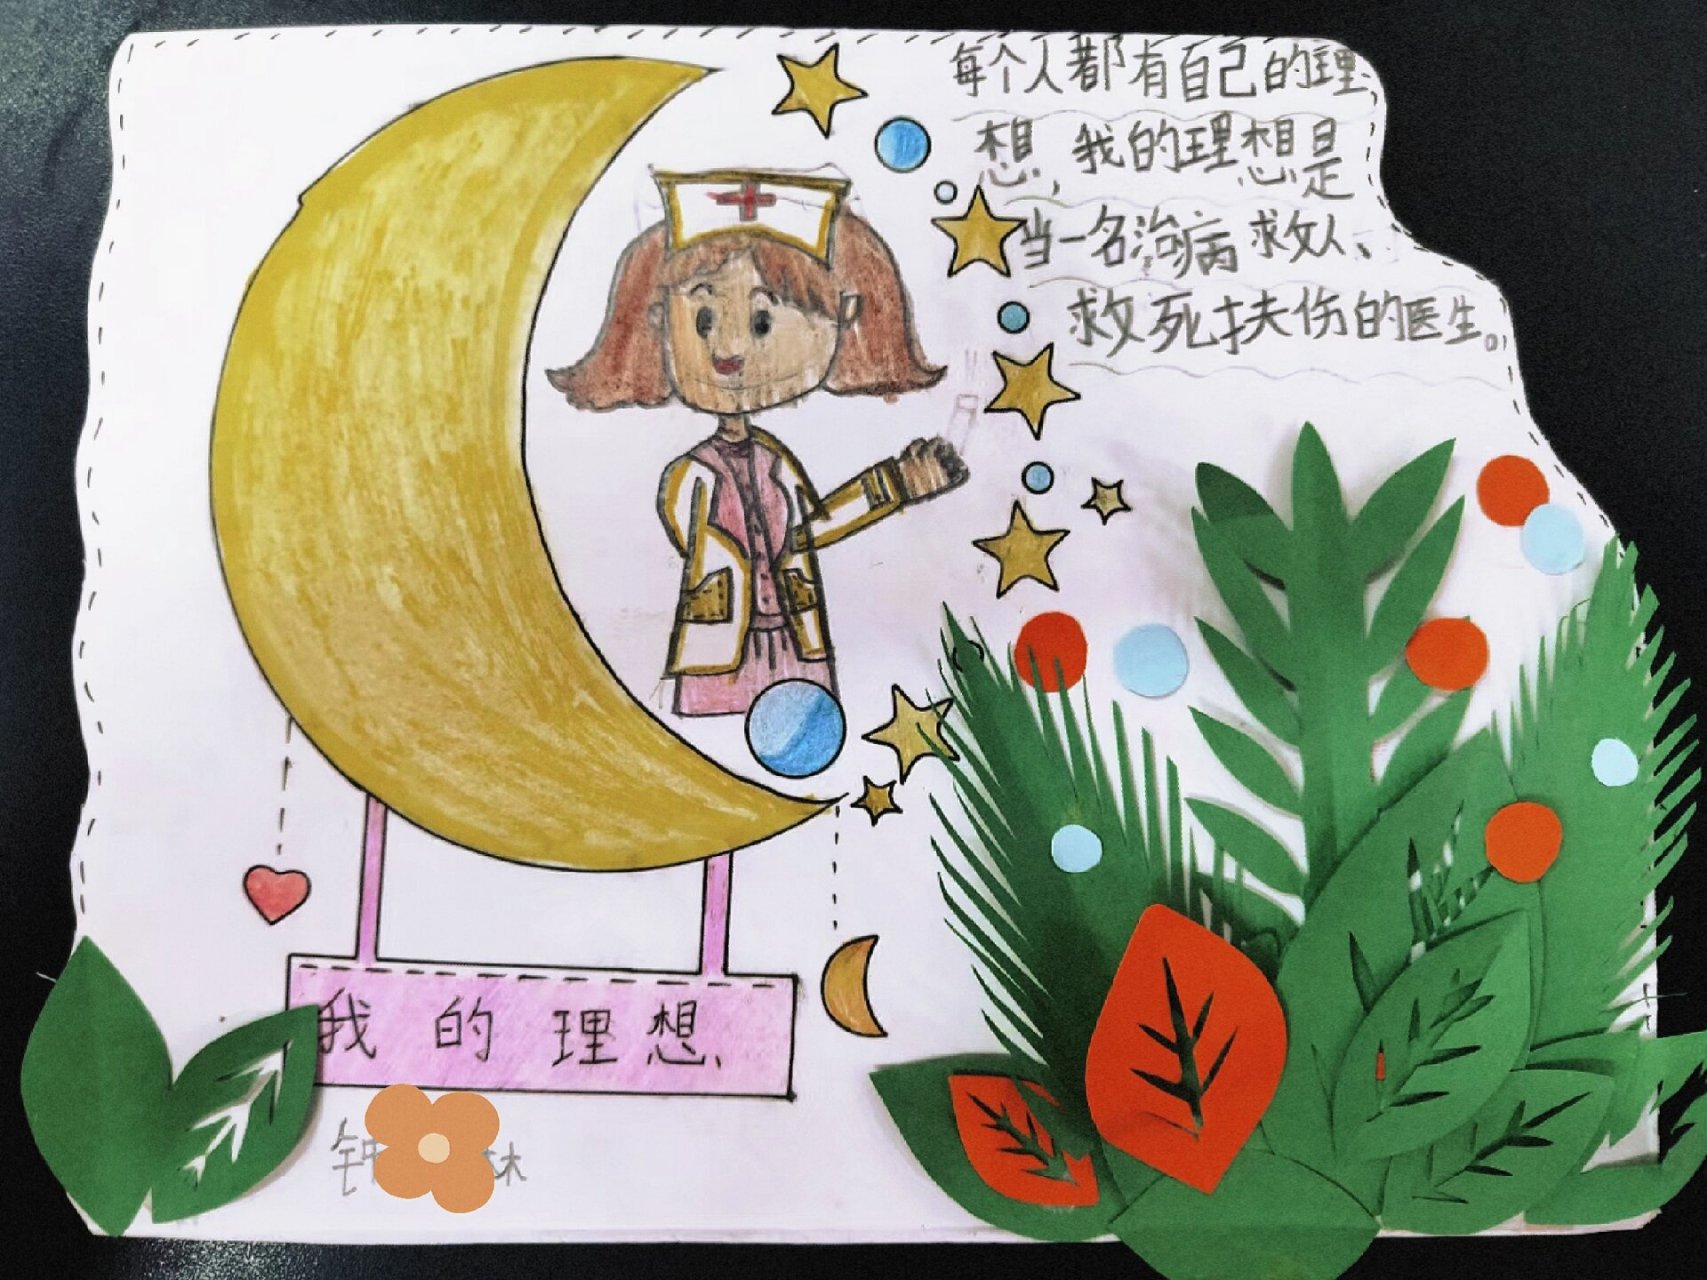 每个人都有自己的理
想,我的理想是
当一名治病救人、
救死扶伤的医生。
我的理想
钟 林